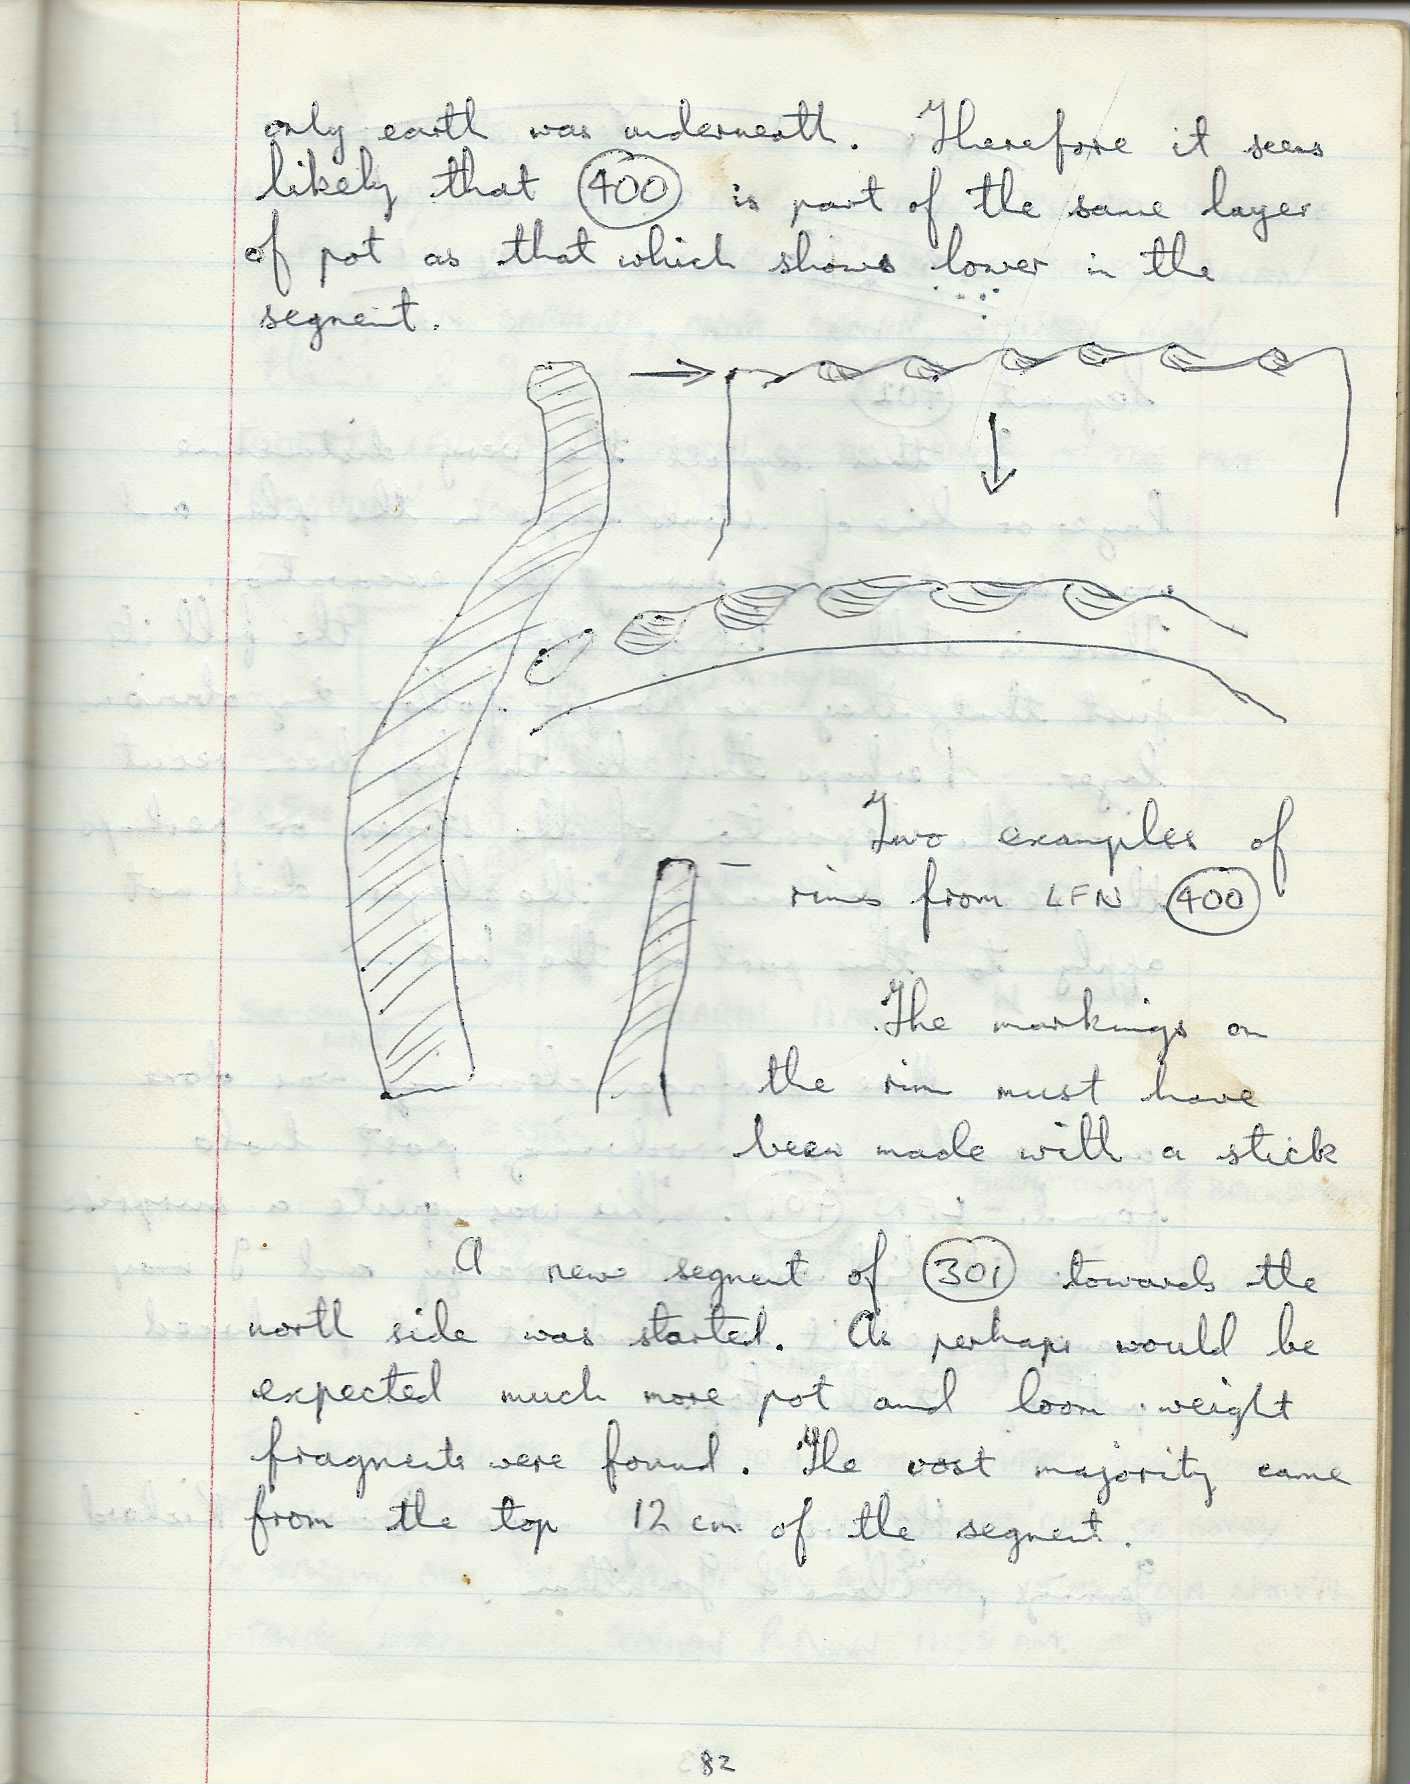 only earth was underneath. Therefore it seems
likely that 400 is part of the same layer
of pot as that which shows lower in the
segment.
Two examples of
rims from LFN 400
The markings on
the rim must have
been made with a stick
A new segment of 301 towards the
north side was started. As perhaps would be
expected much more pot and loom weight
fragments were found. The vast majority came
from the top 12 cm of the segment.
82